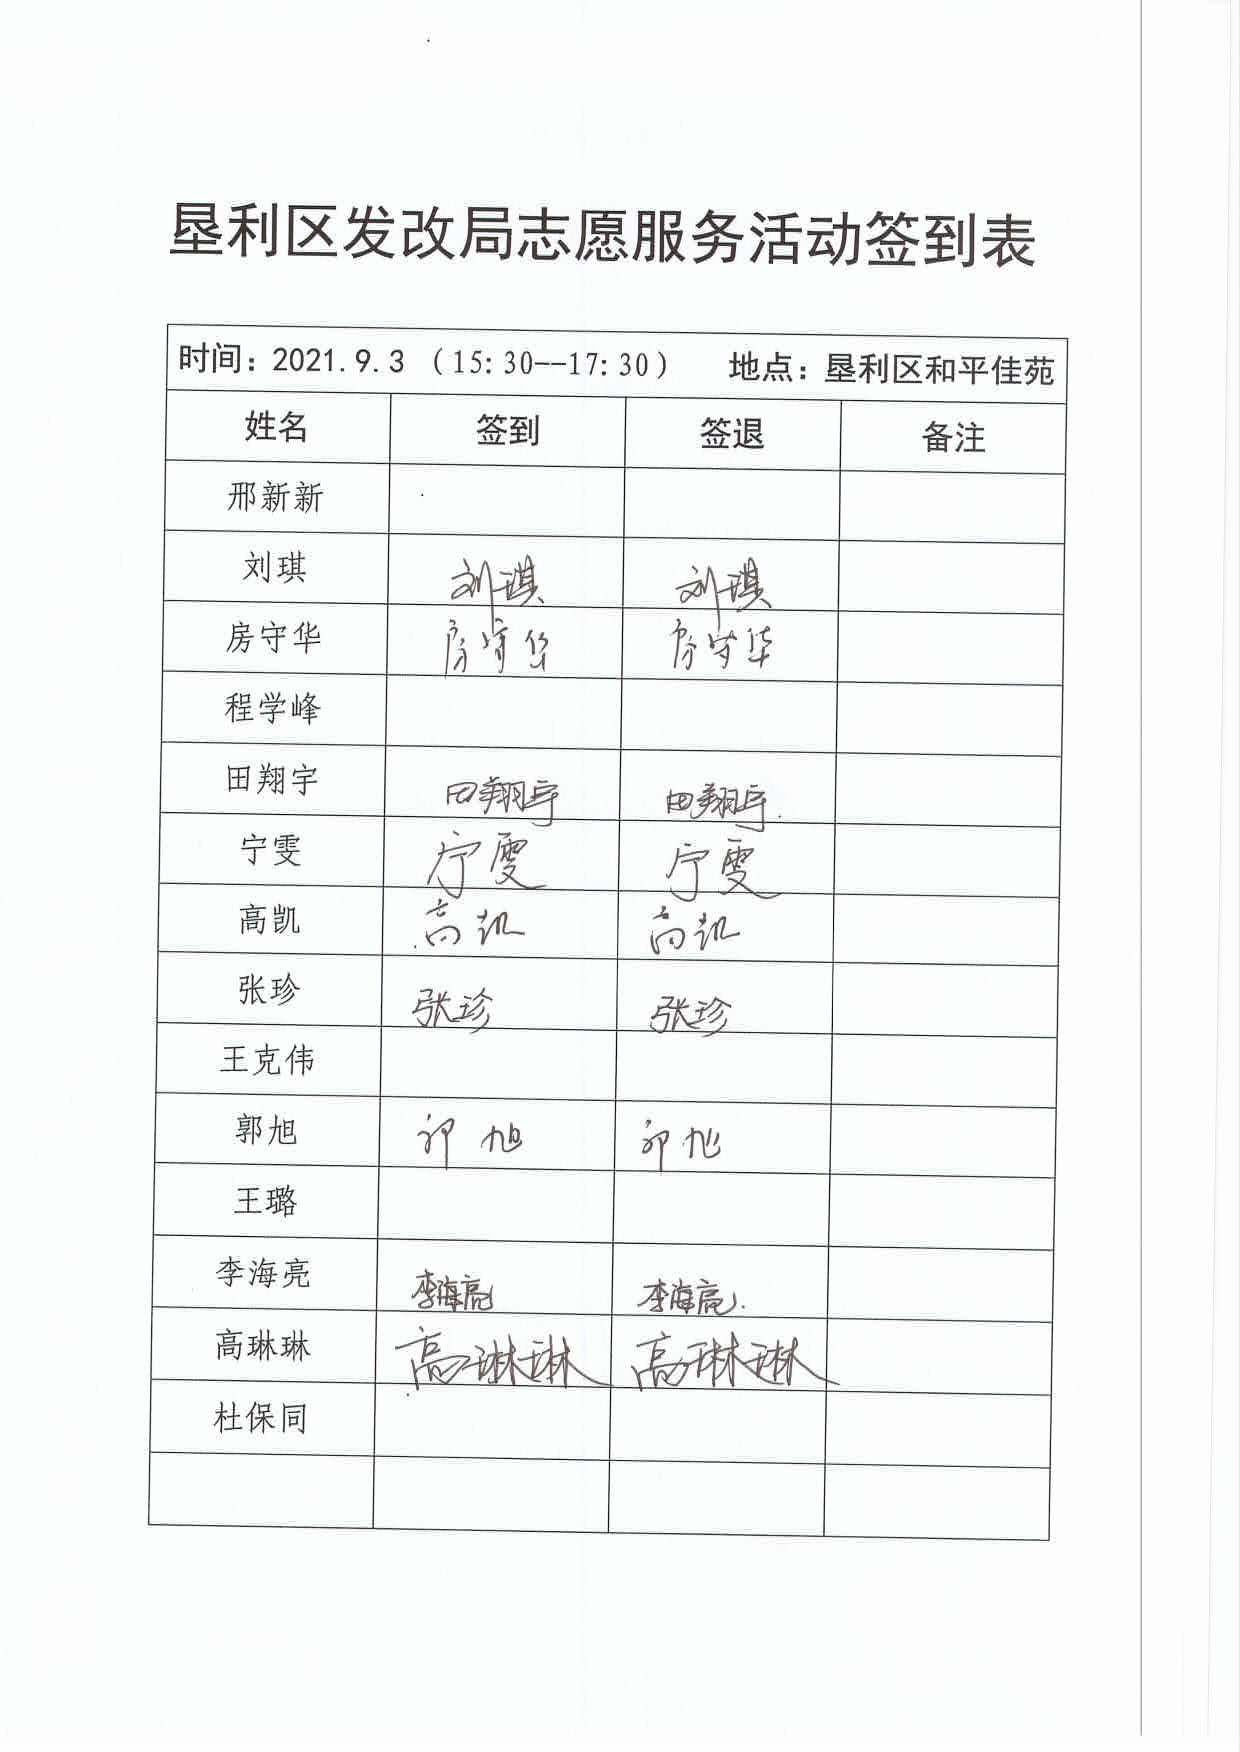 垦利区发改局志愿服务活动签到表
时间：2021.9.3（15：30--17：30） 地点：垦利区和平佳苑
姓名 签到 签退 备注
邢新新
刘琪 刘琪 刘琪
房守华 房守华 房守华
程学峰
田翔宇 田翔宇 田翔宇
宁雯 宁雯 宁雯
高凯 高凯 高凯
张珍 张珍 张珍
王克伟
郭旭 郭旭 郭旭
王璐
李海亮 李海亮 李海亮
高琳琳 高琳琳 高琳琳
杜保同